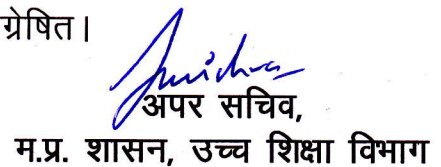 ग्रेषित।
अपर सचिव,
म.प्र. शासन, उच्च शिक्षा विभाग